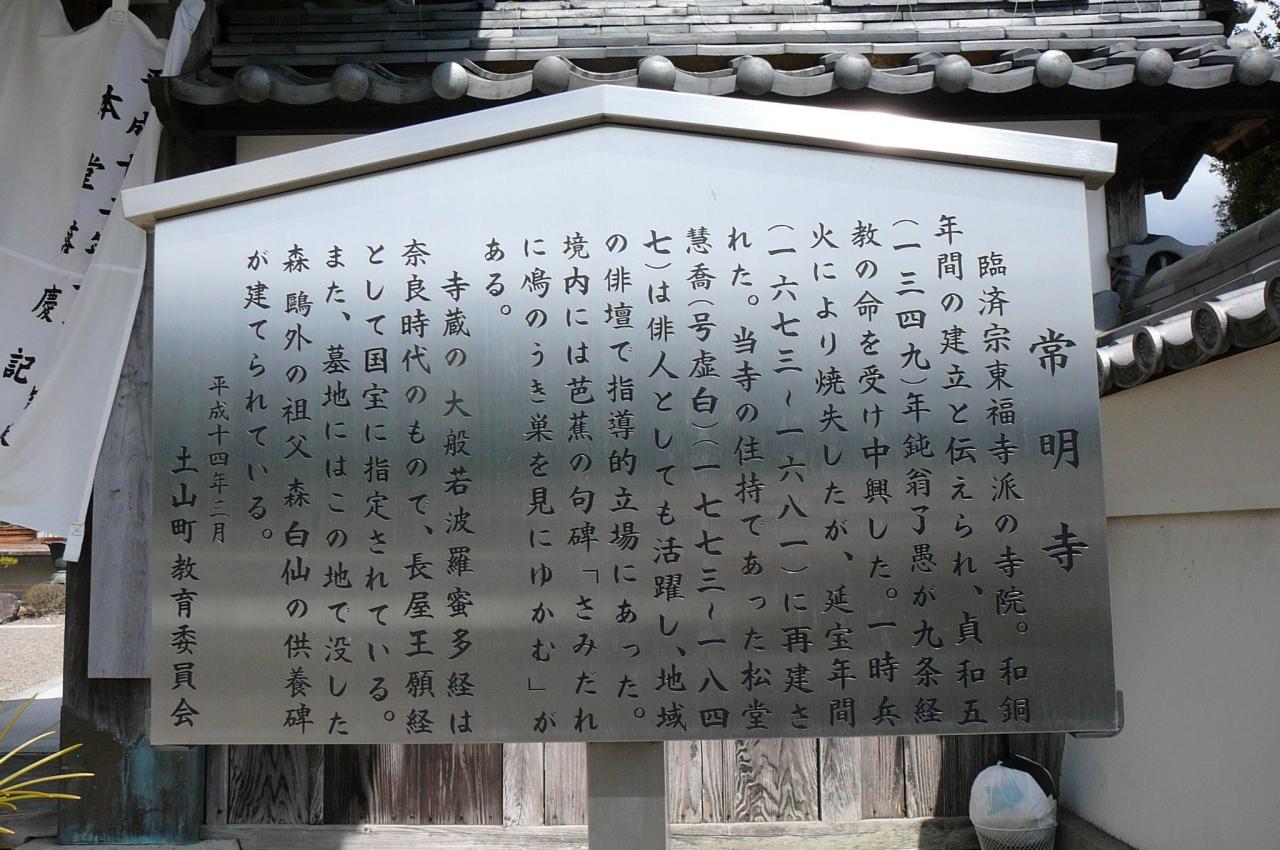 常明寺
臨済宗東福寺派の寺院。和銅
年間の建立と伝えられ、貞和五
(一三四九)年鈍翁了愚が九条経
教の命を受け中興した。一時兵
火により焼失したが、延宝年間
(一六七三~一六八一)に再建さ
れた。当寺の住持であった松堂
慧喬(号虚白)(一七七三~一八四
七)は俳人としても活躍し、地域
の俳壇で指導的立場にあった。
境内には芭蕉の句碑「さみだれ
に鳰のうき巣を見にゆかむ」が
ある。
寺蔵の大般若波羅蜜多経は
奈良時代のもので、長屋王願経
として国宝に指定されている。
また、墓地にはこの地で没した
森鷗外の祖父森白仙の供養碑
が建てられている。
平成十四年三月
土山町教育委員会
本堂
慶
記